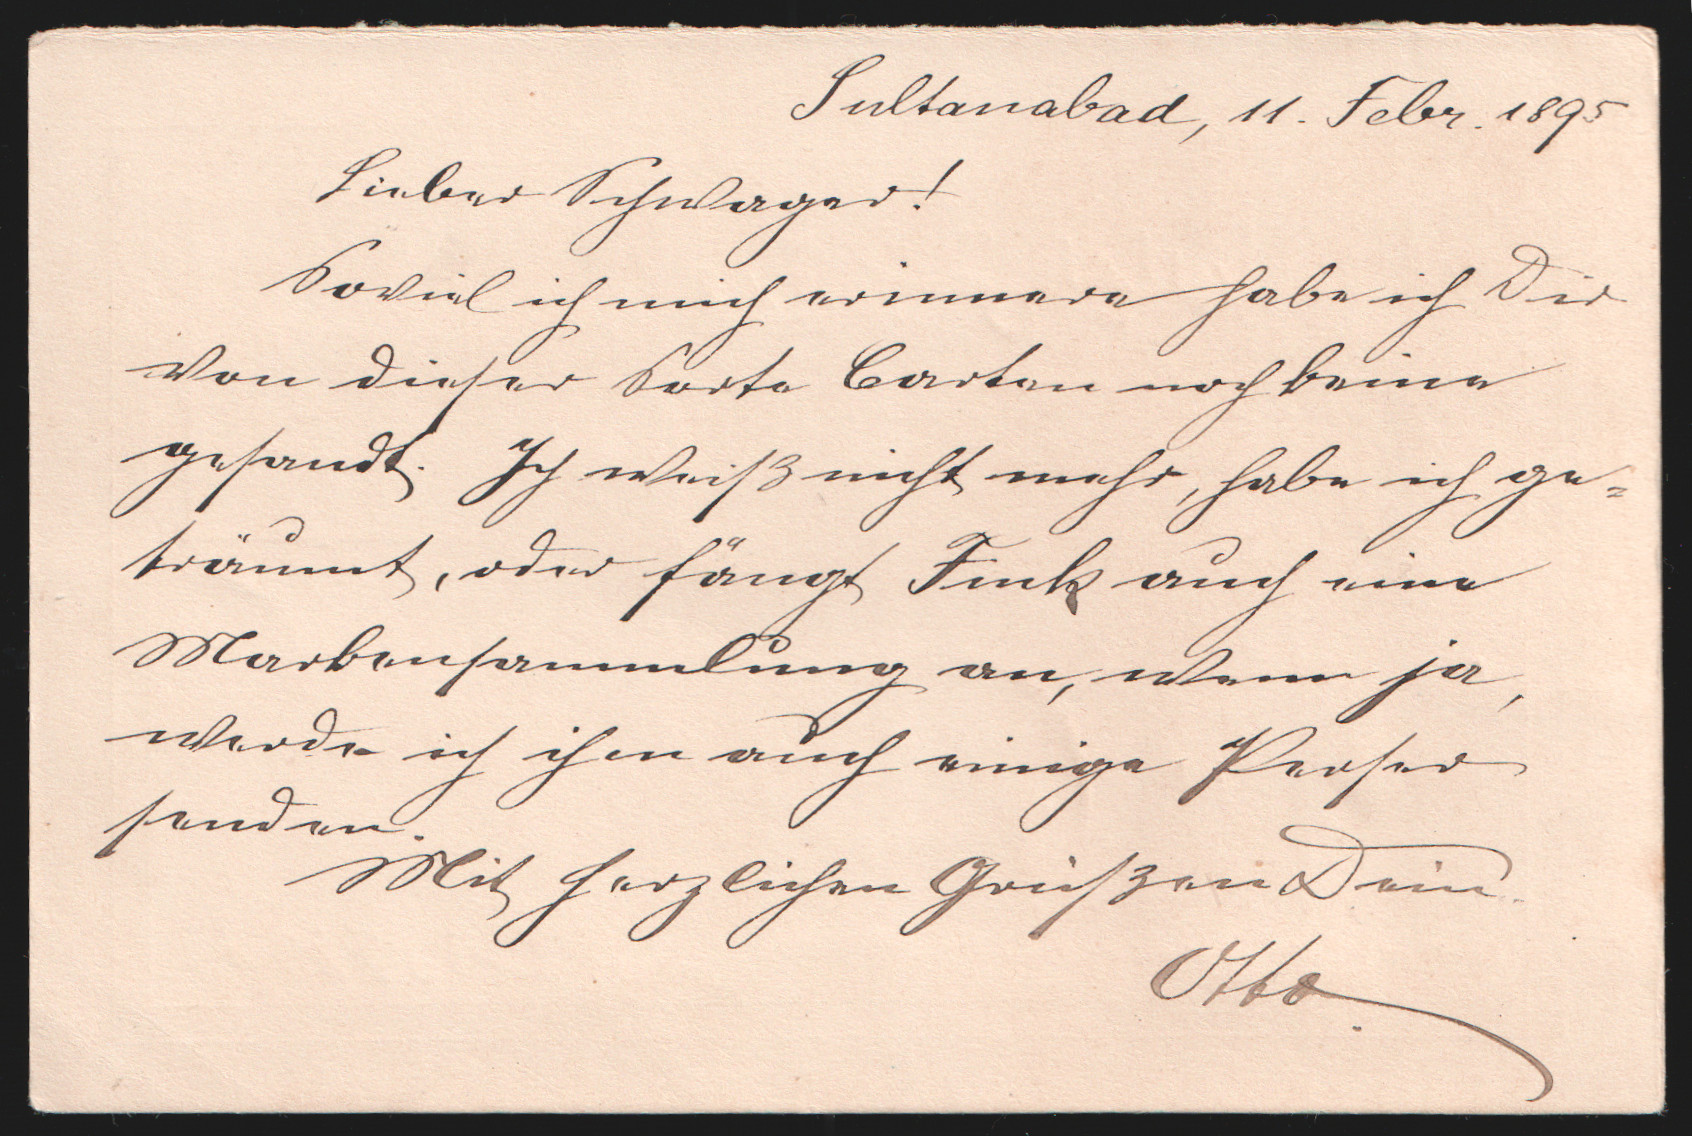 Sultanabad, 11. Febr. 1895
Lieber Schwager!
Soviel ich mich erinnere habe ich Dir
von dieser Sorte Carten noch keine
gesandt. Ich weiß nicht mehr, habe ich ge=
träumt, oder fängt Fink auch eine
Markensammlung an, wenn ja,
werde ich ihm auch einige Perser
senden.
Mit herzlichen Grüßen Dein
Otto